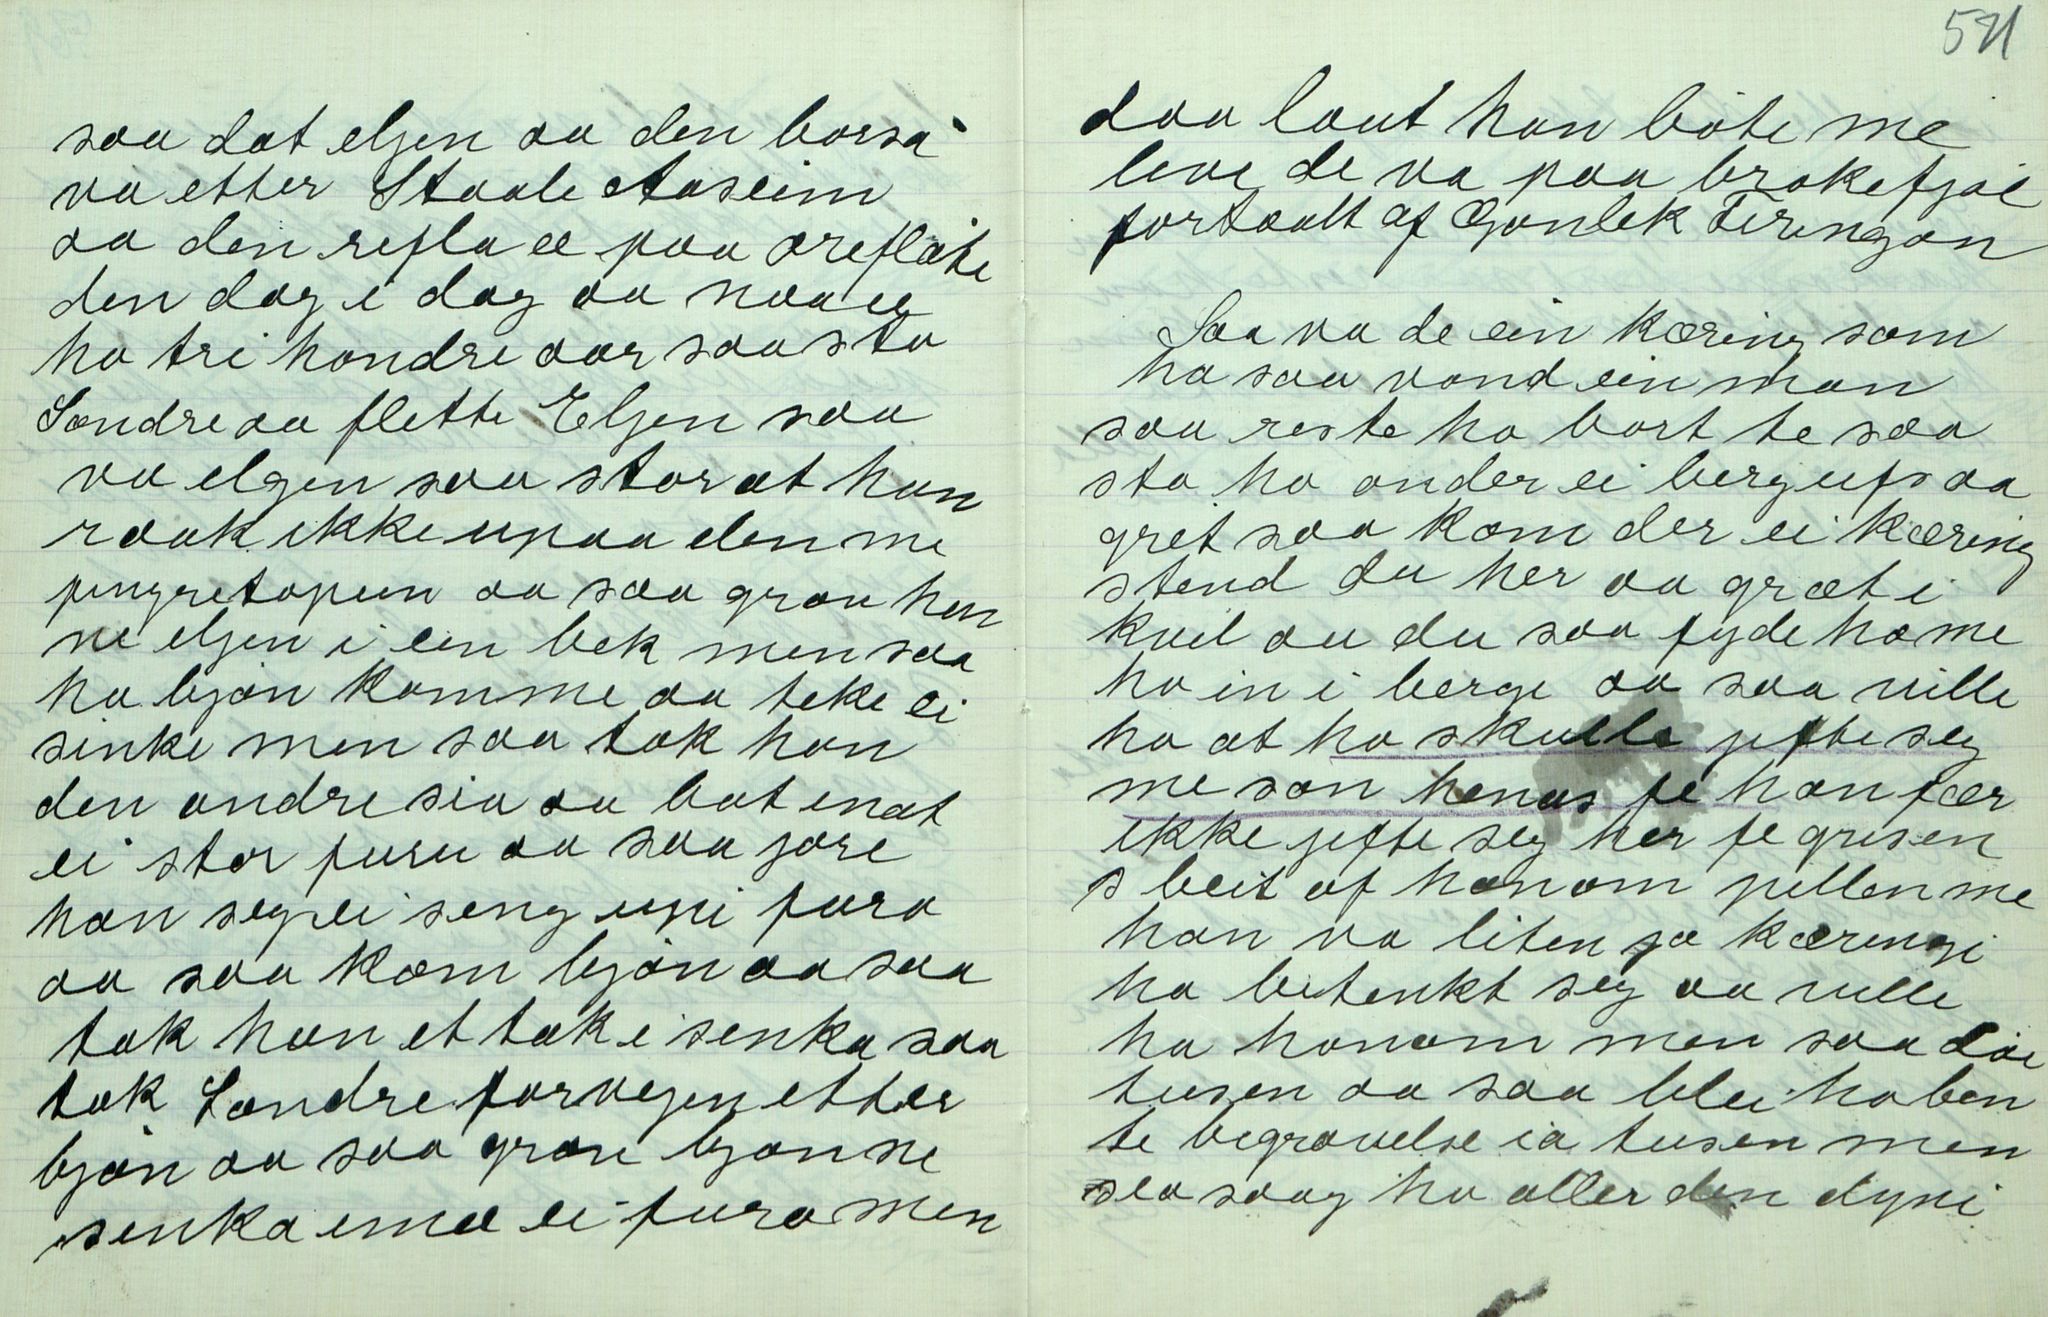 saa dat elgen aa den børsa
va etter Staale Aaseim
aa den refla æ paa øreflæte
den dag i dag aa naa æ
ho tri hondre aar saa sto
Søndre aa flette Elgen saa
va elgen saa stor at han
raak ikke upaa den me
fingretopen aa saa grov han
ne elgen i ein bek men saa
ha bjøn komme aa teke ei
sinke men saa tok han
den andre sia aa bat inat
ei stor furu aa saa jore
han seg ei seng upi furo
aa saa kom bjøn aa saa
tok han et tak i senka saa
tok Søndre forvegen etter
bjøn aa saa grov bjøn ne
senka imæ ei furo men
541
daa laut han bøte me
live de va paa brokefjøl
fortaalt af Gonlek Feringøn
Saa va de ein kæring som
ha saa vond ein man
saa reste ho bort te saa
sto ho onder ei bergufs aa
gret saa kom der ei kæring
stend du her aa græt i
kvel aa du saa fyde ho me
ho in i berge aa saa ville
ho at ho skulle jifte seg
me son henas fe han fær
ikke jifte seg her fe grisen
sbeit af honom pillen me
han va liten ja kæringi
ha betenkt seg aa ville
ha honom men saa døe
tusen aa saa blei ho ben
te begravelse ia tusen men
sea saag ho aller den dyni